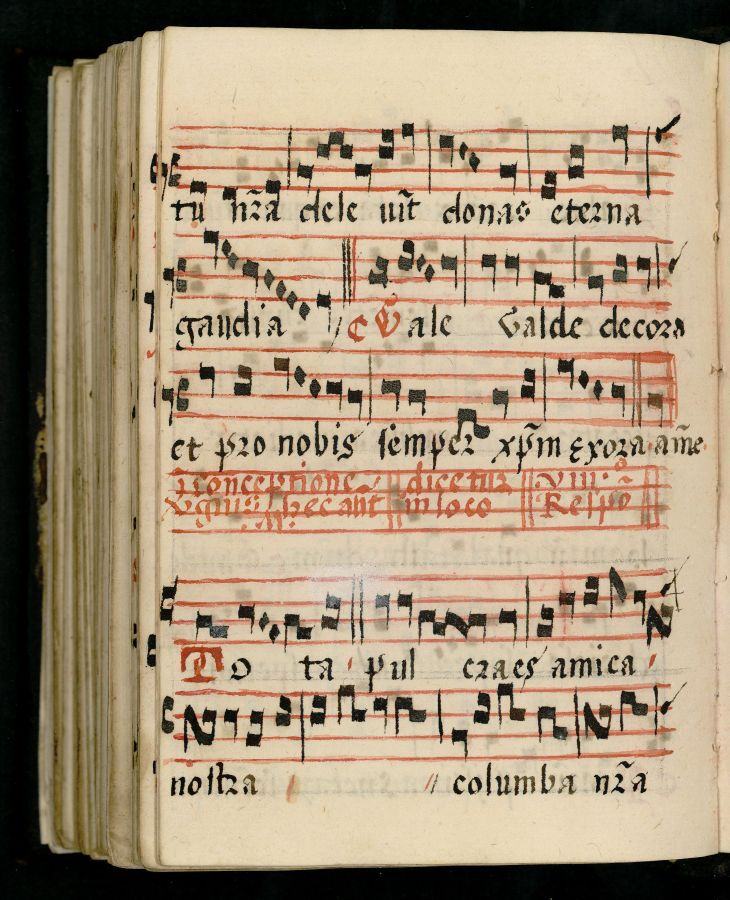 tu nr̃a dele uit̃ donas eterna
gaudia / ¢ Vale Valde decora
et pro nobis semper xp̃m exora am̃e
conceptione dicetur VIII.
hec ant̃ in loco Respo
Tota pulcraes amica
nostra // columba nr̃a